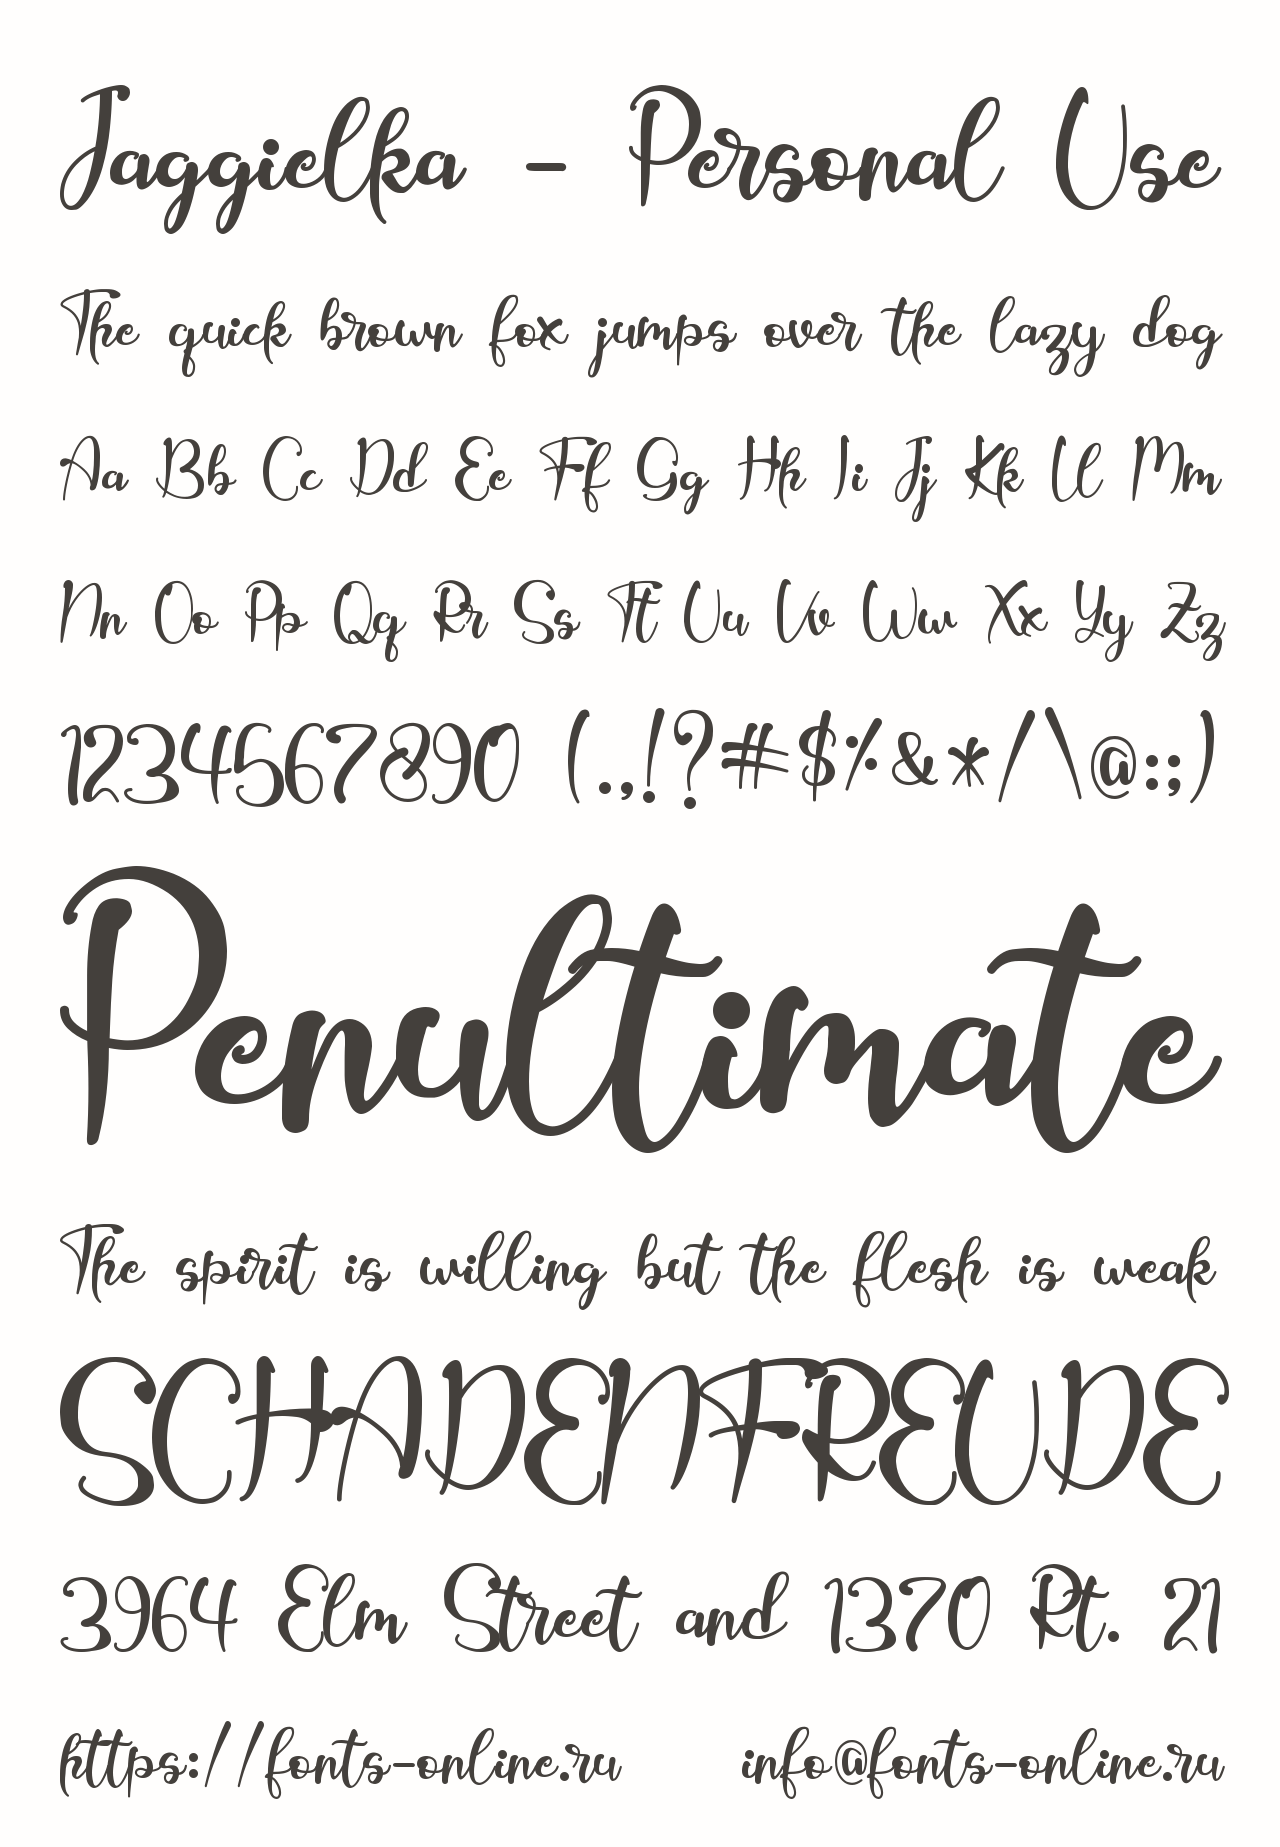 Jaggielka - Personal Use
The quick brown fox jumps over the lazy dog
Aa Bb Cc Dd Ee Ff Gg Hh Ii Jj Kk Ll Mm
Nn Oo Pp Qq Rr Ss Tt Uu Vv Ww Xx Yy Zz
1234567890 (.,!?#$%&*/\@:;)
Penultimate
The spirit is willing but the flesh is weak
SCHADENFREUDE
3964 Elm Street and 1370 Rt. 21
https://fonts-online.ru info@fonts-online.ru